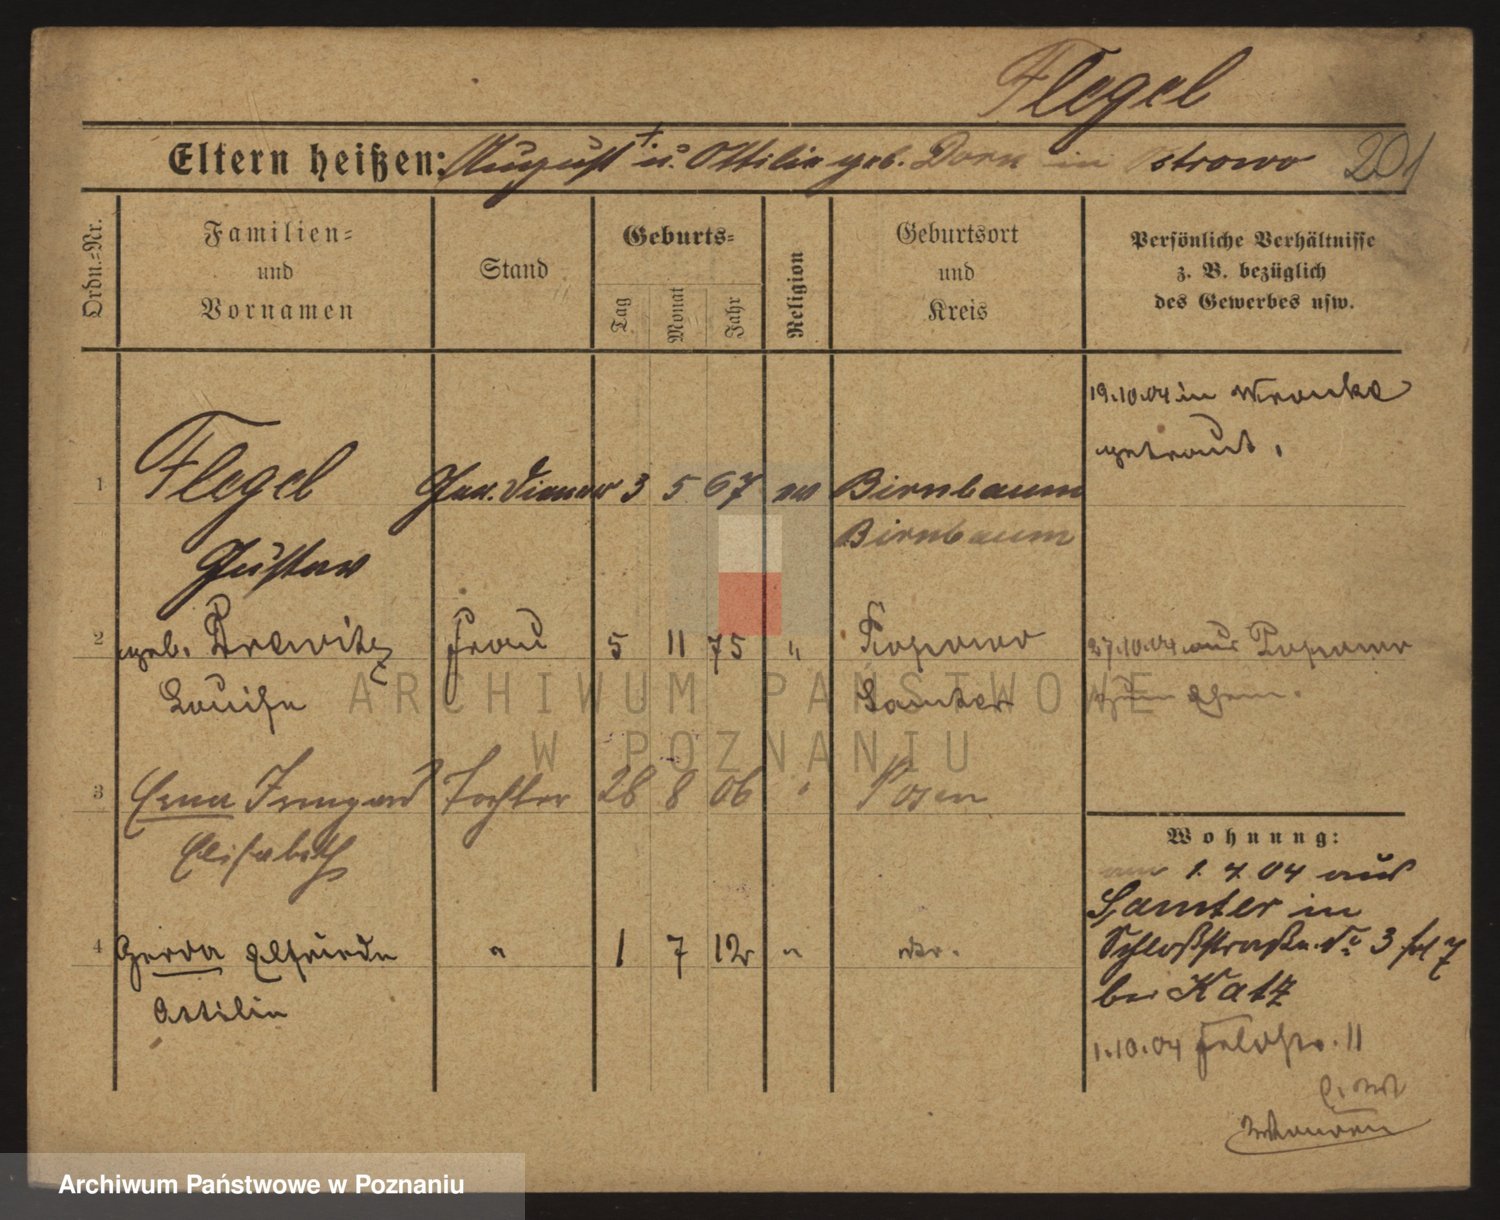 Flegel
Eltern heißen: August † u. Ottilie geb. Dorn in Ostrowo 201
Ordn.-Nr.
Familien-
und
Vornamen
Stand
Geburts-
Tag
Monat
Jahr
Religion
Geburtsort
und
Kreis
Persönliche Verhältnisse
z. B. bezüglich
des Gewerbes usw.
19.10.04 in Wronke
getraut.
1 Flegel 3 5 67 ev Birnbaum
Birnbaum
Gustav
2 geb. Drewitz Frau 5 11 75 " Popowo 27.10.04 aus Popowo
Louise Samter zum Ehem.
3 Erna Irmgard Tochter 28 8 06 " Posen
Elisabeth
Wohnung:
am 1.4.04 aus
Samter in
4 Gerda Elfriede " 1 7 12 " Schloßstraße No 3
Ottilie bei Katz
1.10.04 Feldstr. 11
ARCHIWUM PAŃSTWOWE
W POZNANIU
Archiwum Państwowe w Poznaniu